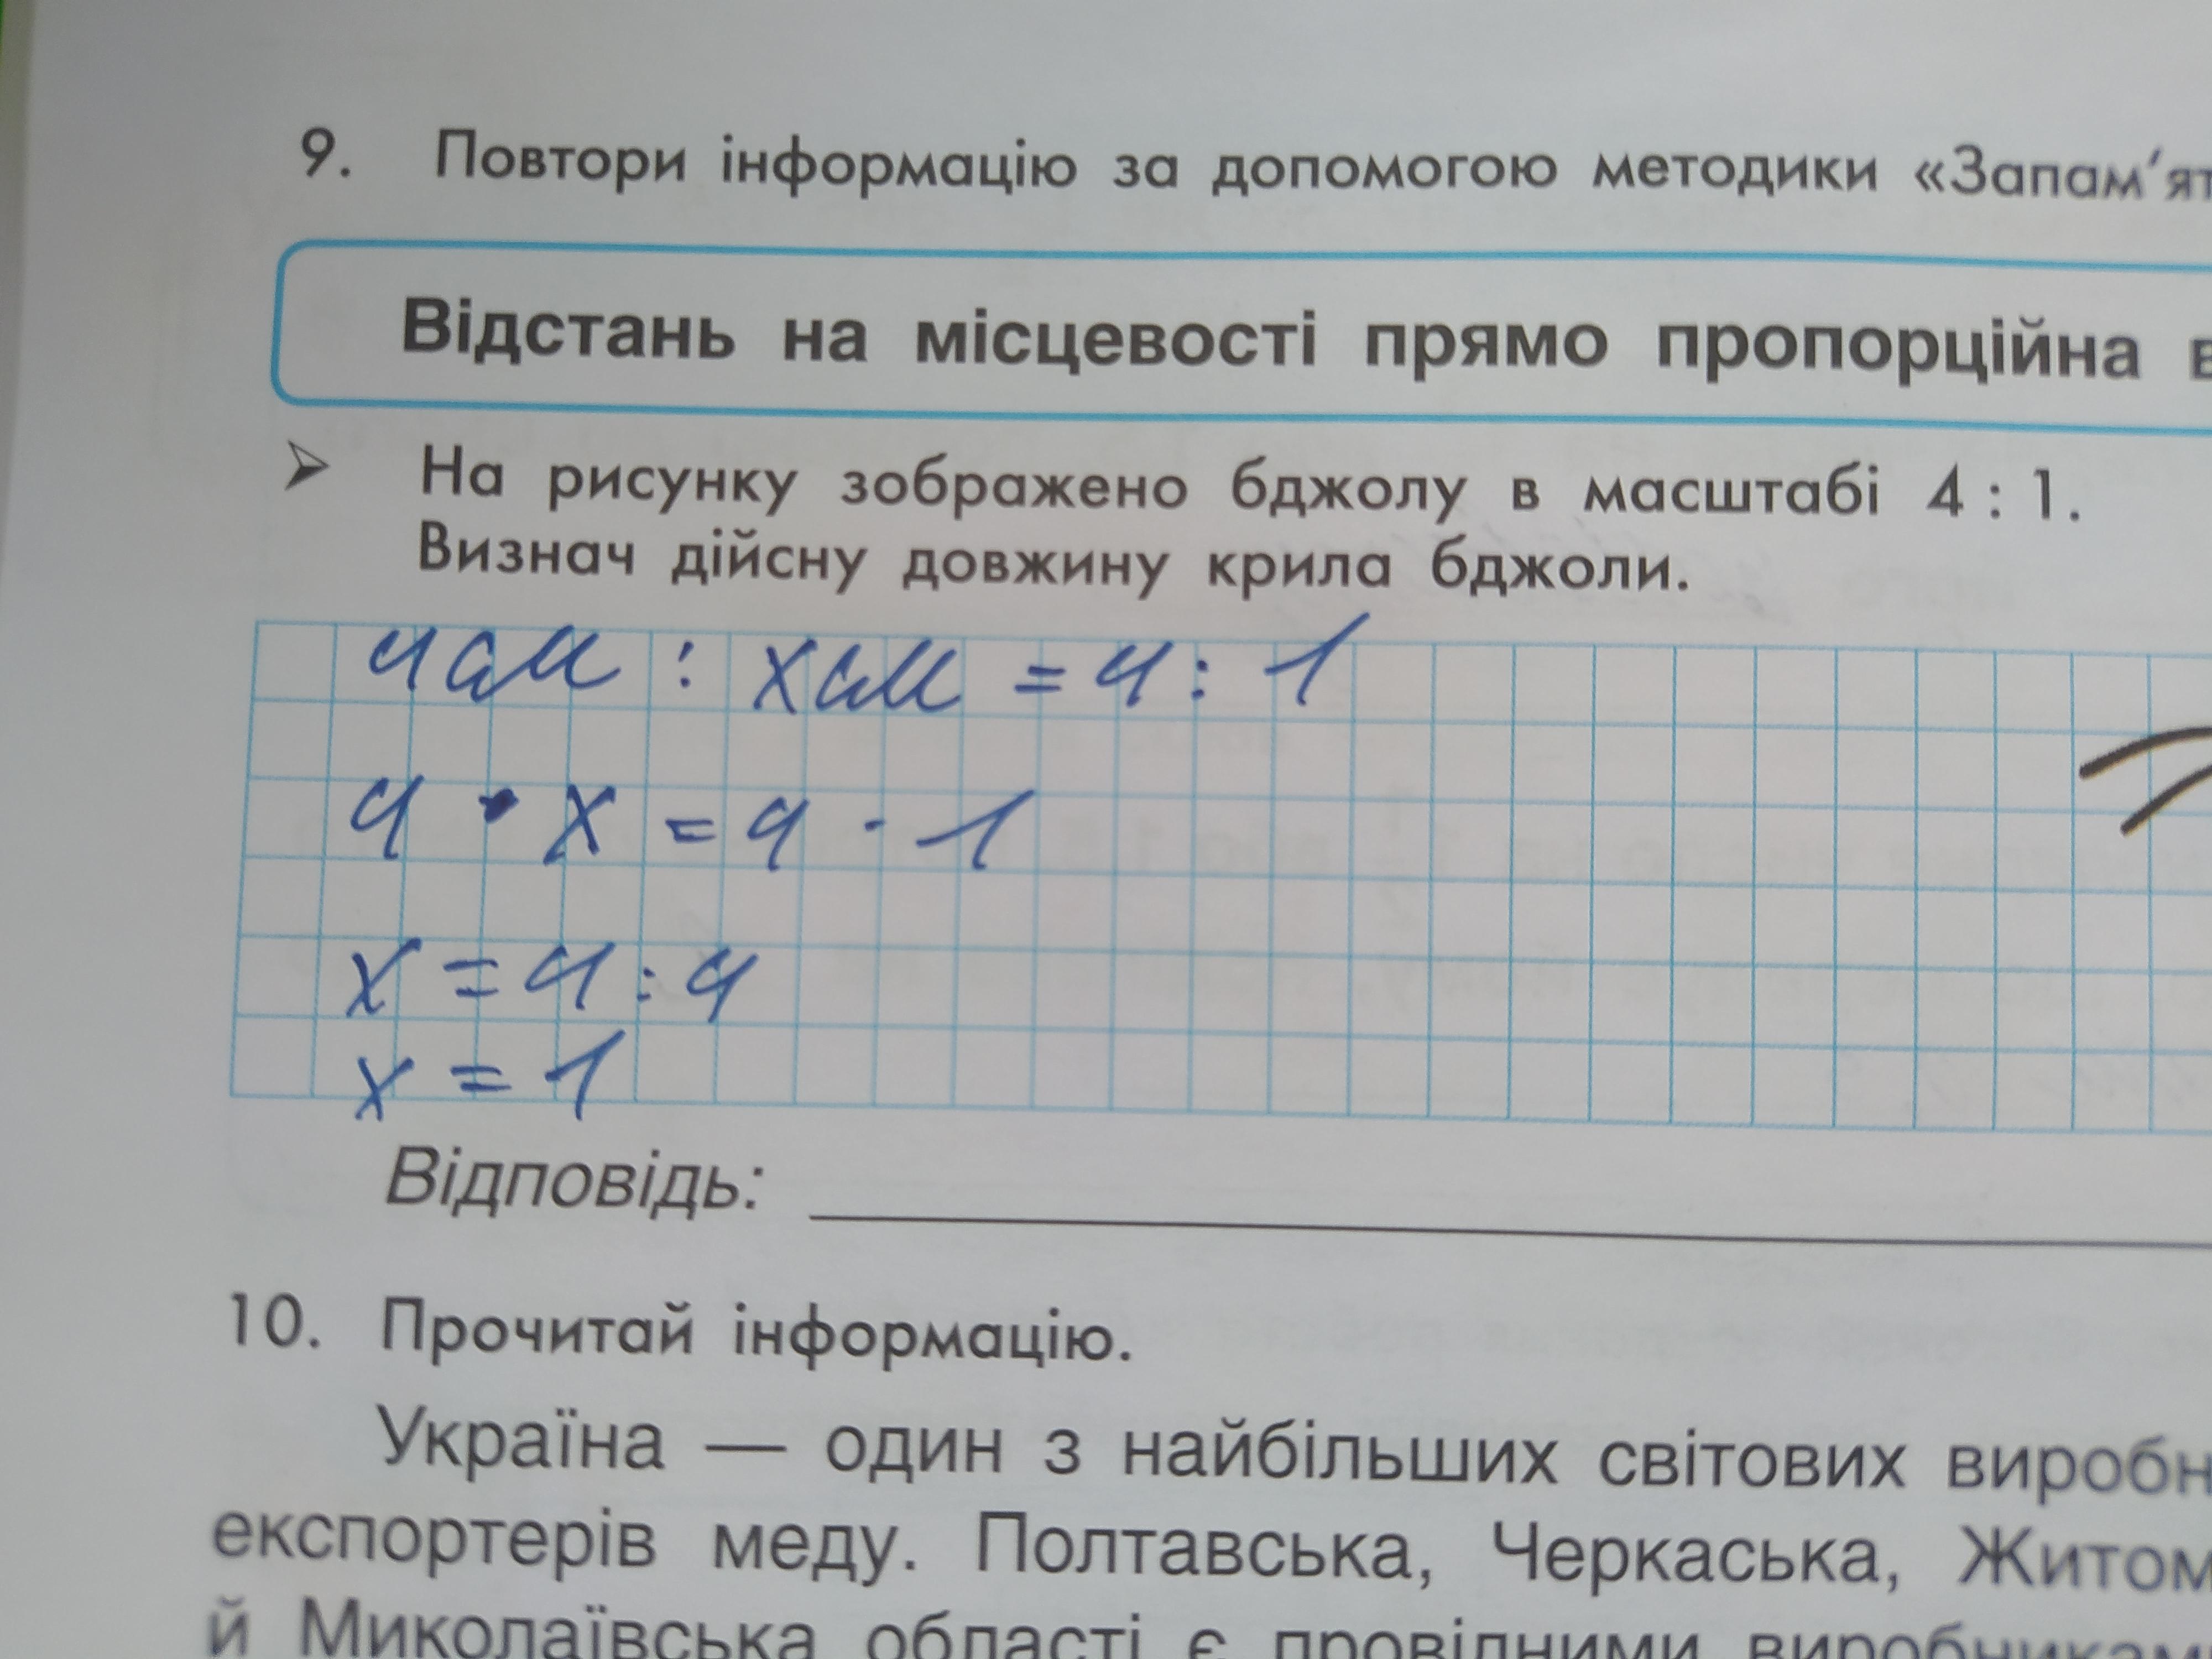 9. Повтори інформацію за допомогою методики «Запам'ят
Відстань на місцевості прямо пропорційна в
➤ На рисунку зображено бджолу в масштабі 4 : 1.
Визнач дійсну довжину крила бджоли.
4 см : x см = 4 : 1
4 · x = 4 · 1
x = 4 : 4
x = 1
Відповідь:
10. Прочитай інформацію.
Україна — один з найбільших світових виробн
експортерів меду. Полтавська, Черкаська, Житом
й Миколаївська області є провідними виробниками